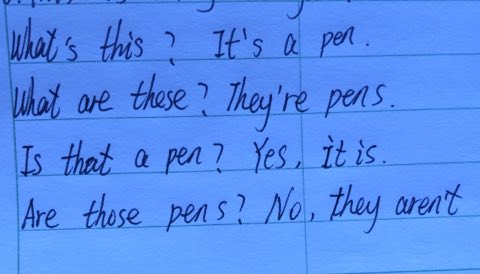 What's this? It's a pen.
What are these? They're pens.
Is that a pen? Yes, it is.
Are those pens? No, they aren't